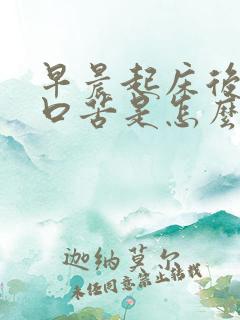 早晨起床後
口苦是怎麼
迦纳莫尔
未经同意禁止转载